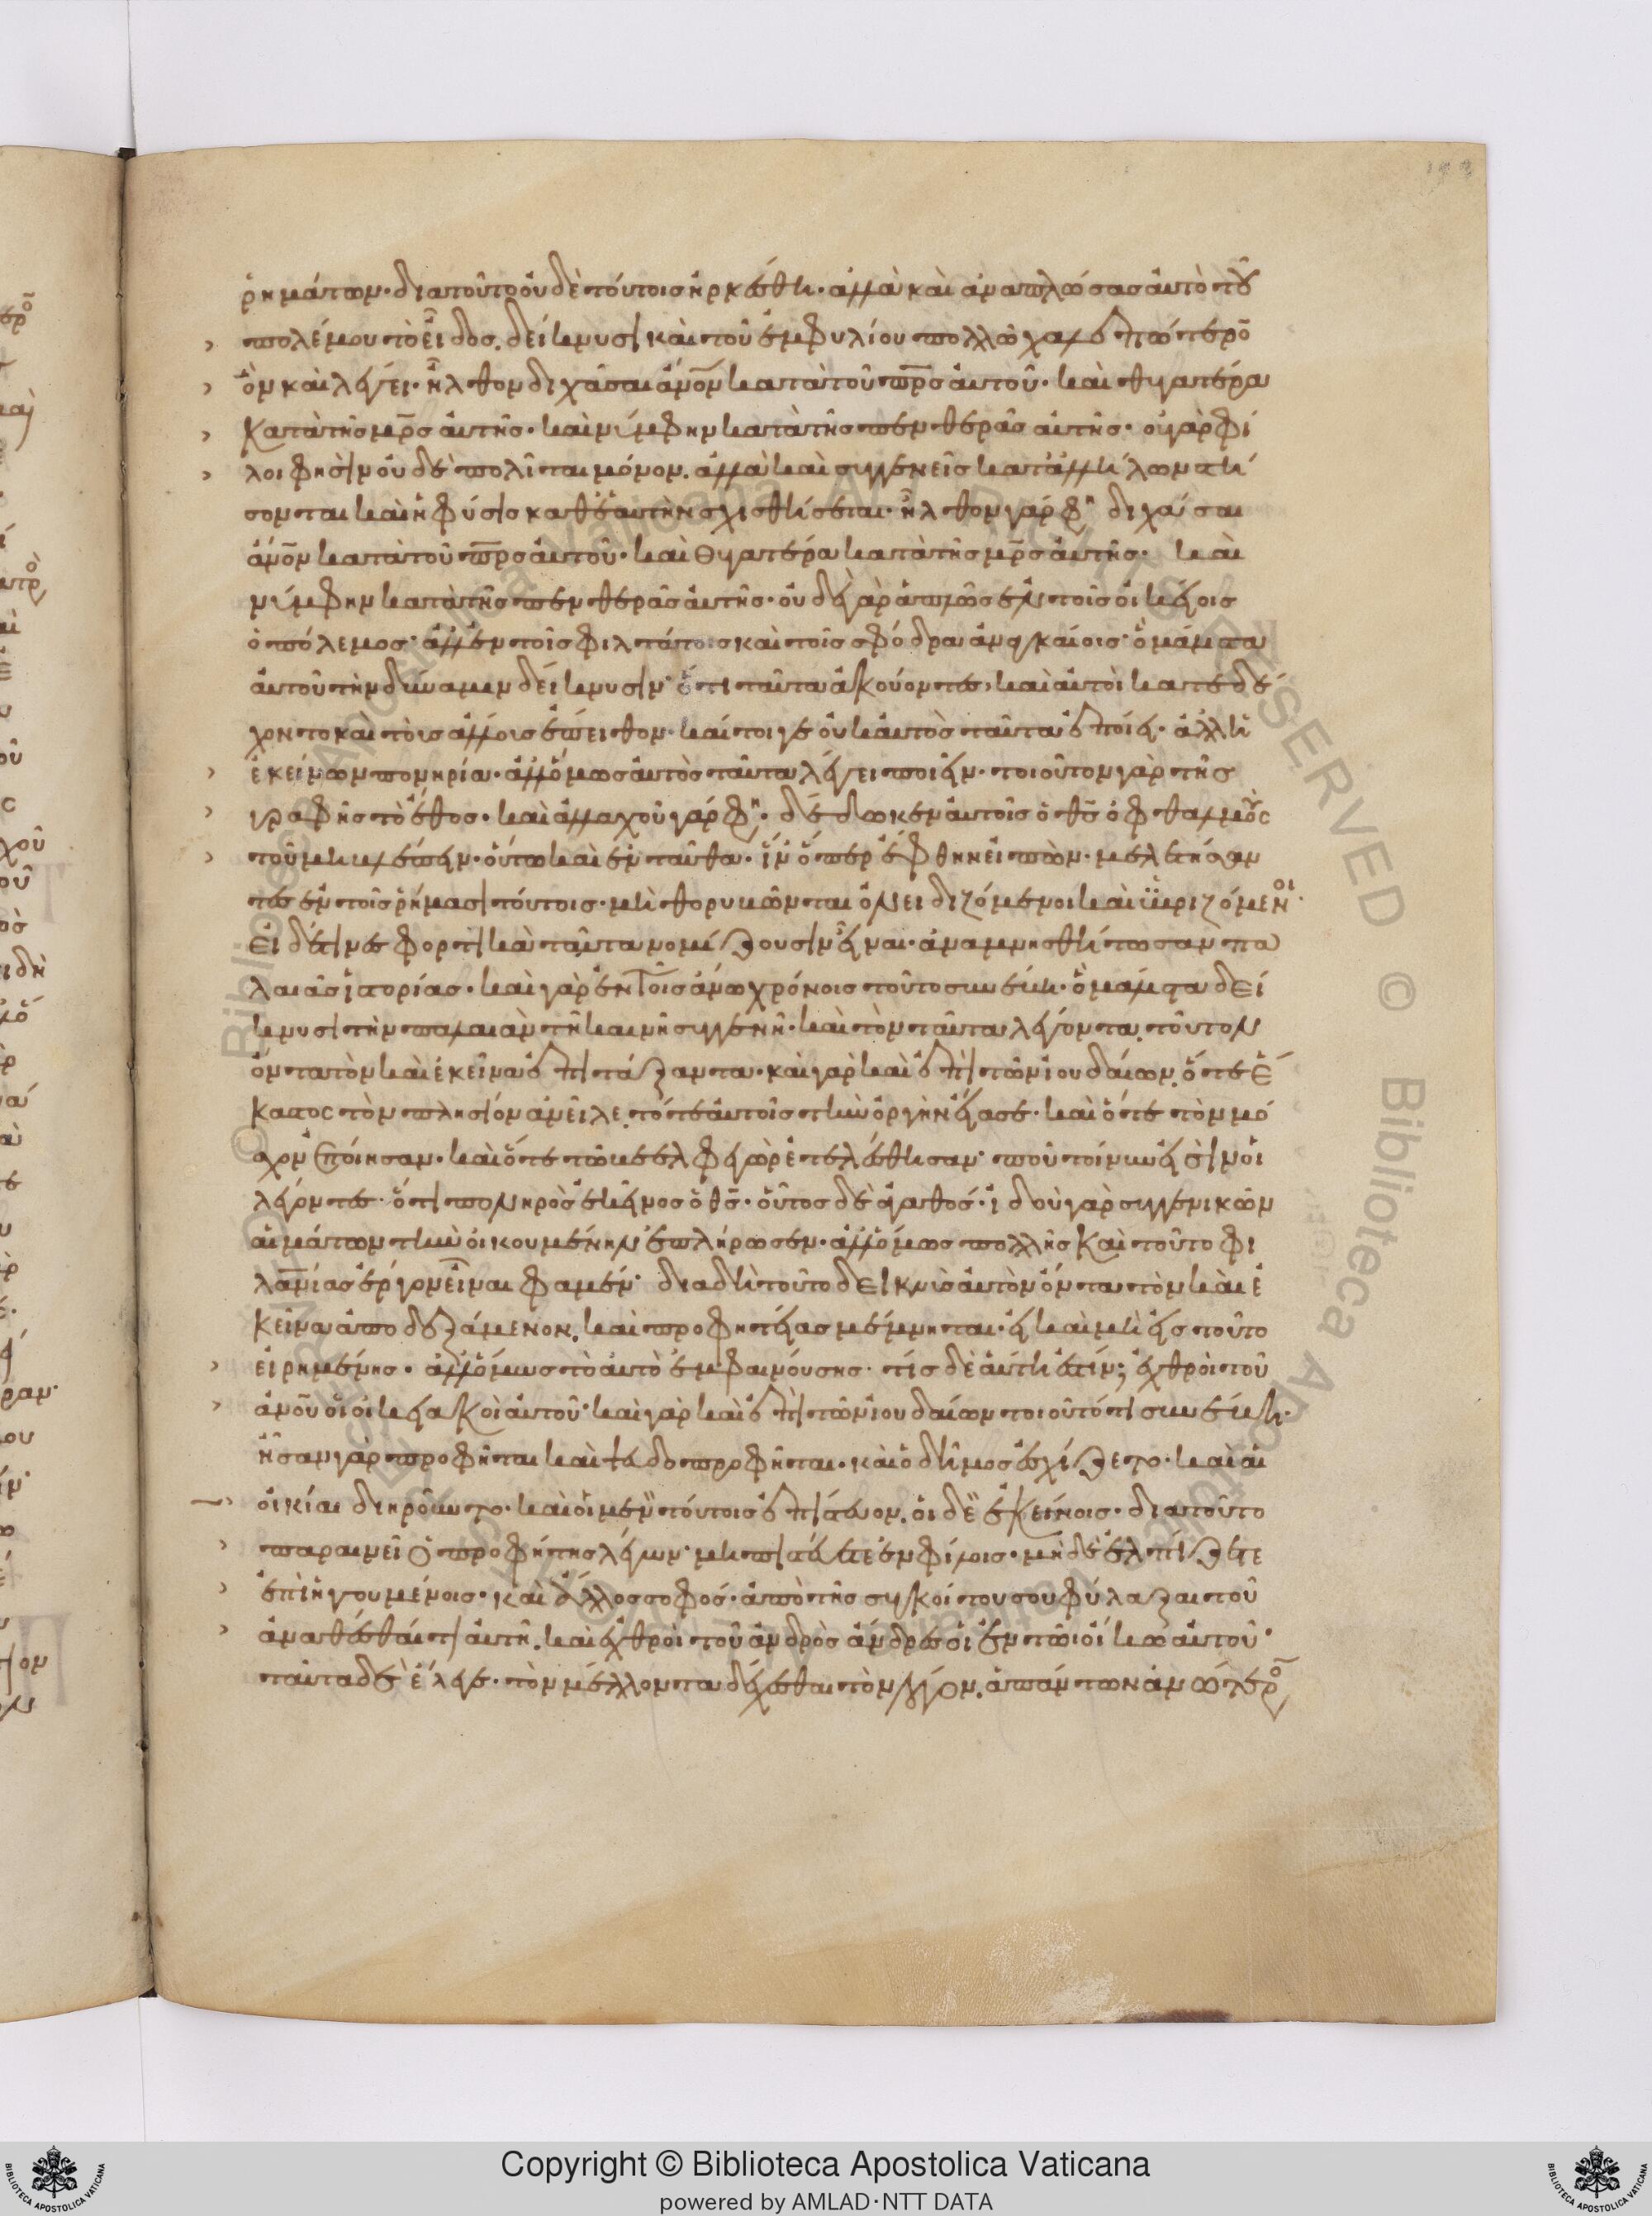 ῥημάτων· διατοῦτο οὐδὲ τούτοις ἠρκέσθη· ἀλλὰ καὶ ἀναπλώσας αὐτὸ τοῦ
πολέμου τὸ εἶδος, δείκνυσι καὶ τοῦ ἐμφυλίου πολλῶ χαλεπώτερο̅
ὃν καὶ λέγει· ἦλθον διχάσαι ἄνο̅ν κατὰ τοῦ πρ̅ς αὐτοῦ· καὶ θυγατέρα
κατὰ τῆς μρ̅ς αὐτῆς· καὶ νύμφην κατὰ τῆς πενθερᾶς αὐτῆς· οὐ γὰρ φί
λοι φησὶν οὐδὲ πολῖται μόνον, ἀλλὰ καὶ συγγενεῖς κατ' ἀλλήλων στή
σονται καὶ ἡ φύσις καθ' ἑαυτὴν σχισθήσεται· ἦλθον γάρ φη διχάσαι
ἄνο̅ν κατὰ τοῦ πρ̅ς αὐτοῦ· καὶ θυγατέρα κατὰ τῆς μρ̅ς αὐτῆς· καὶ
νύμφην κατὰ τῆς πενθερᾶς αὐτῆς· οὐδὲ γὰρ ἁπλῶς ἐν τοῖς οἰκείοις
ὁ πόλεμος· ἀλλ' ἐν τοῖς φιλτάτοις καὶ τοῖς σφόδρα ἀναγκαίοις· ὃ μάλιστα
αὐτοῦ τὴν δύναμιν δείκνυσιν· ὅτι ταῦτα ἀκούοντες, καὶ αὐτοὶ κατεδέ
χοντο καὶ τοὺς ἄλλους ἔπειθον· καίτοιγε οὐκ αὐτὸς ταῦτα ἐποίει· ἀλλ' ἡ
ἐκείνων πονηρία· ἀλλ' ὅμως αὐτὸς ταῦτα λέγει ποιεῖν· τοιοῦτον γὰρ τῆς
γραφῆς τὸ ἔθος· καὶ ἀλλαχοῦ γάρ φη· δέδωκεν αὐτοῖς ὁ θς̅ ὀφθαλμοὺς
τοῦ μὴ βλέπειν· οὕτω καὶ ἐνταῦθα· ἵν' ὅπερ ἔφθην εἰπὼν· μελετήσαν
τες ἐν τοῖς ῥήμασι τούτοις· μὴ θορυβῶνται ὀνειδιζόμενοι καὶ ὑβριζόμενοι·
εἰ δέ τινες φορτικὰ ταῦτα νομίζουσιν εἶναι· ἀναμνησθήτωσαν πα
λαιᾶς ἱστορίας· καὶ γὰρ ἐν τοῖς ἄνω χρόνοις τοῦτο συνέβη· ὃ μάλιστα δεί
κνυσι τὴν παλαιὰν τῆ καινῆ συγγενῆ· καὶ τὸν ταῦτα λέγοντα, τοῦτον
ὄντα τὸν καὶ ἐκεῖνα ἐπιτάξαντα· καὶ γὰρ καὶ ἐπὶ τῶν ἰουδαίων, ὅτε ἕ
καστος τὸν πλησίον ἀνεῖλε, τότε αὐτοῖς τὴν ὀργὴν εἴασε· καὶ ὅτε τὸν μό
σχον ἐποίησαν· καὶ ὅτε τῶ βεελφεγὼρ ἐτελέσθησαν· ποῦ τοίνυν εἰσὶν οἱ
λέγοντες· ὅτι πονηρὸς ἐκεῖνος ὁ θς̅· οὗτος δὲ ἀγαθός· ἰδοὺ γὰρ συγγενικῶν
αἱμάτων τὴν οἰκουμένην ἐπλήρωσεν· ἀλλ' ὅμως πολλῆς καὶ τοῦτο φι
λανίας ἔργον εἶναι φαμέν· διαδὴ τοῦτο δεικνὺς αὐτὸν ὄντα τὸν καὶ ἐ
κεῖνα ἀποδεξάμενον, καὶ προφητείας μέμνηται· εἰ καὶ μὴ εἰς τοῦτο
εἰρημένης· ἀλλ' ὅμως τὸ αὐτὸ ἐμφαινούσης· τίς δὲ αὕτη ἐστίν; ἐχθροὶ τοῦ
ἀνο̅ῦ οἱ οἰκειακοὶ αὐτοῦ· καὶ γὰρ καὶ ἐπὶ τῶν ἰουδαίων τοιοῦτόν τι συνέβη·
ἦσαν γὰρ προφῆται καὶ ψευδοπροφῆται· καὶ ὁ δῆμος ἐσχίζετο· καὶ αἱ
οἰκίαι διηροῦντο· καὶ οἱ μὲν τούτοις ἐπίστευον, οἱ δὲ ἐκείνοις· διατοῦτο
παραινεῖ ὁ προφήτης λέγων· μὴ πιστεύετε ἐν φίλοις· μὴ δὲ ἐλπίζετε
ἐπὶ ἡγουμένοις· καὶ ἄλλος σοφός· ἀπὸ τῆς συγκοίτου σου φύλαξαι τοῦ
ἀναθέσθαι τι αὐτῆ, καὶ ἐχθροὶ τοῦ ἀνδρὸς ἄνδρες οἱ ἐν τῶ οἴκω αὐτοῦ·
ταῦτα δὲ ἔλεγε· τὸν μέλλοντα δέχεσθαι τὸν λόγον, ἁπάντων ἀνώτερο̅
Copyright © Biblioteca Apostolica Vaticana
powered by AMLAD·NTT DATA